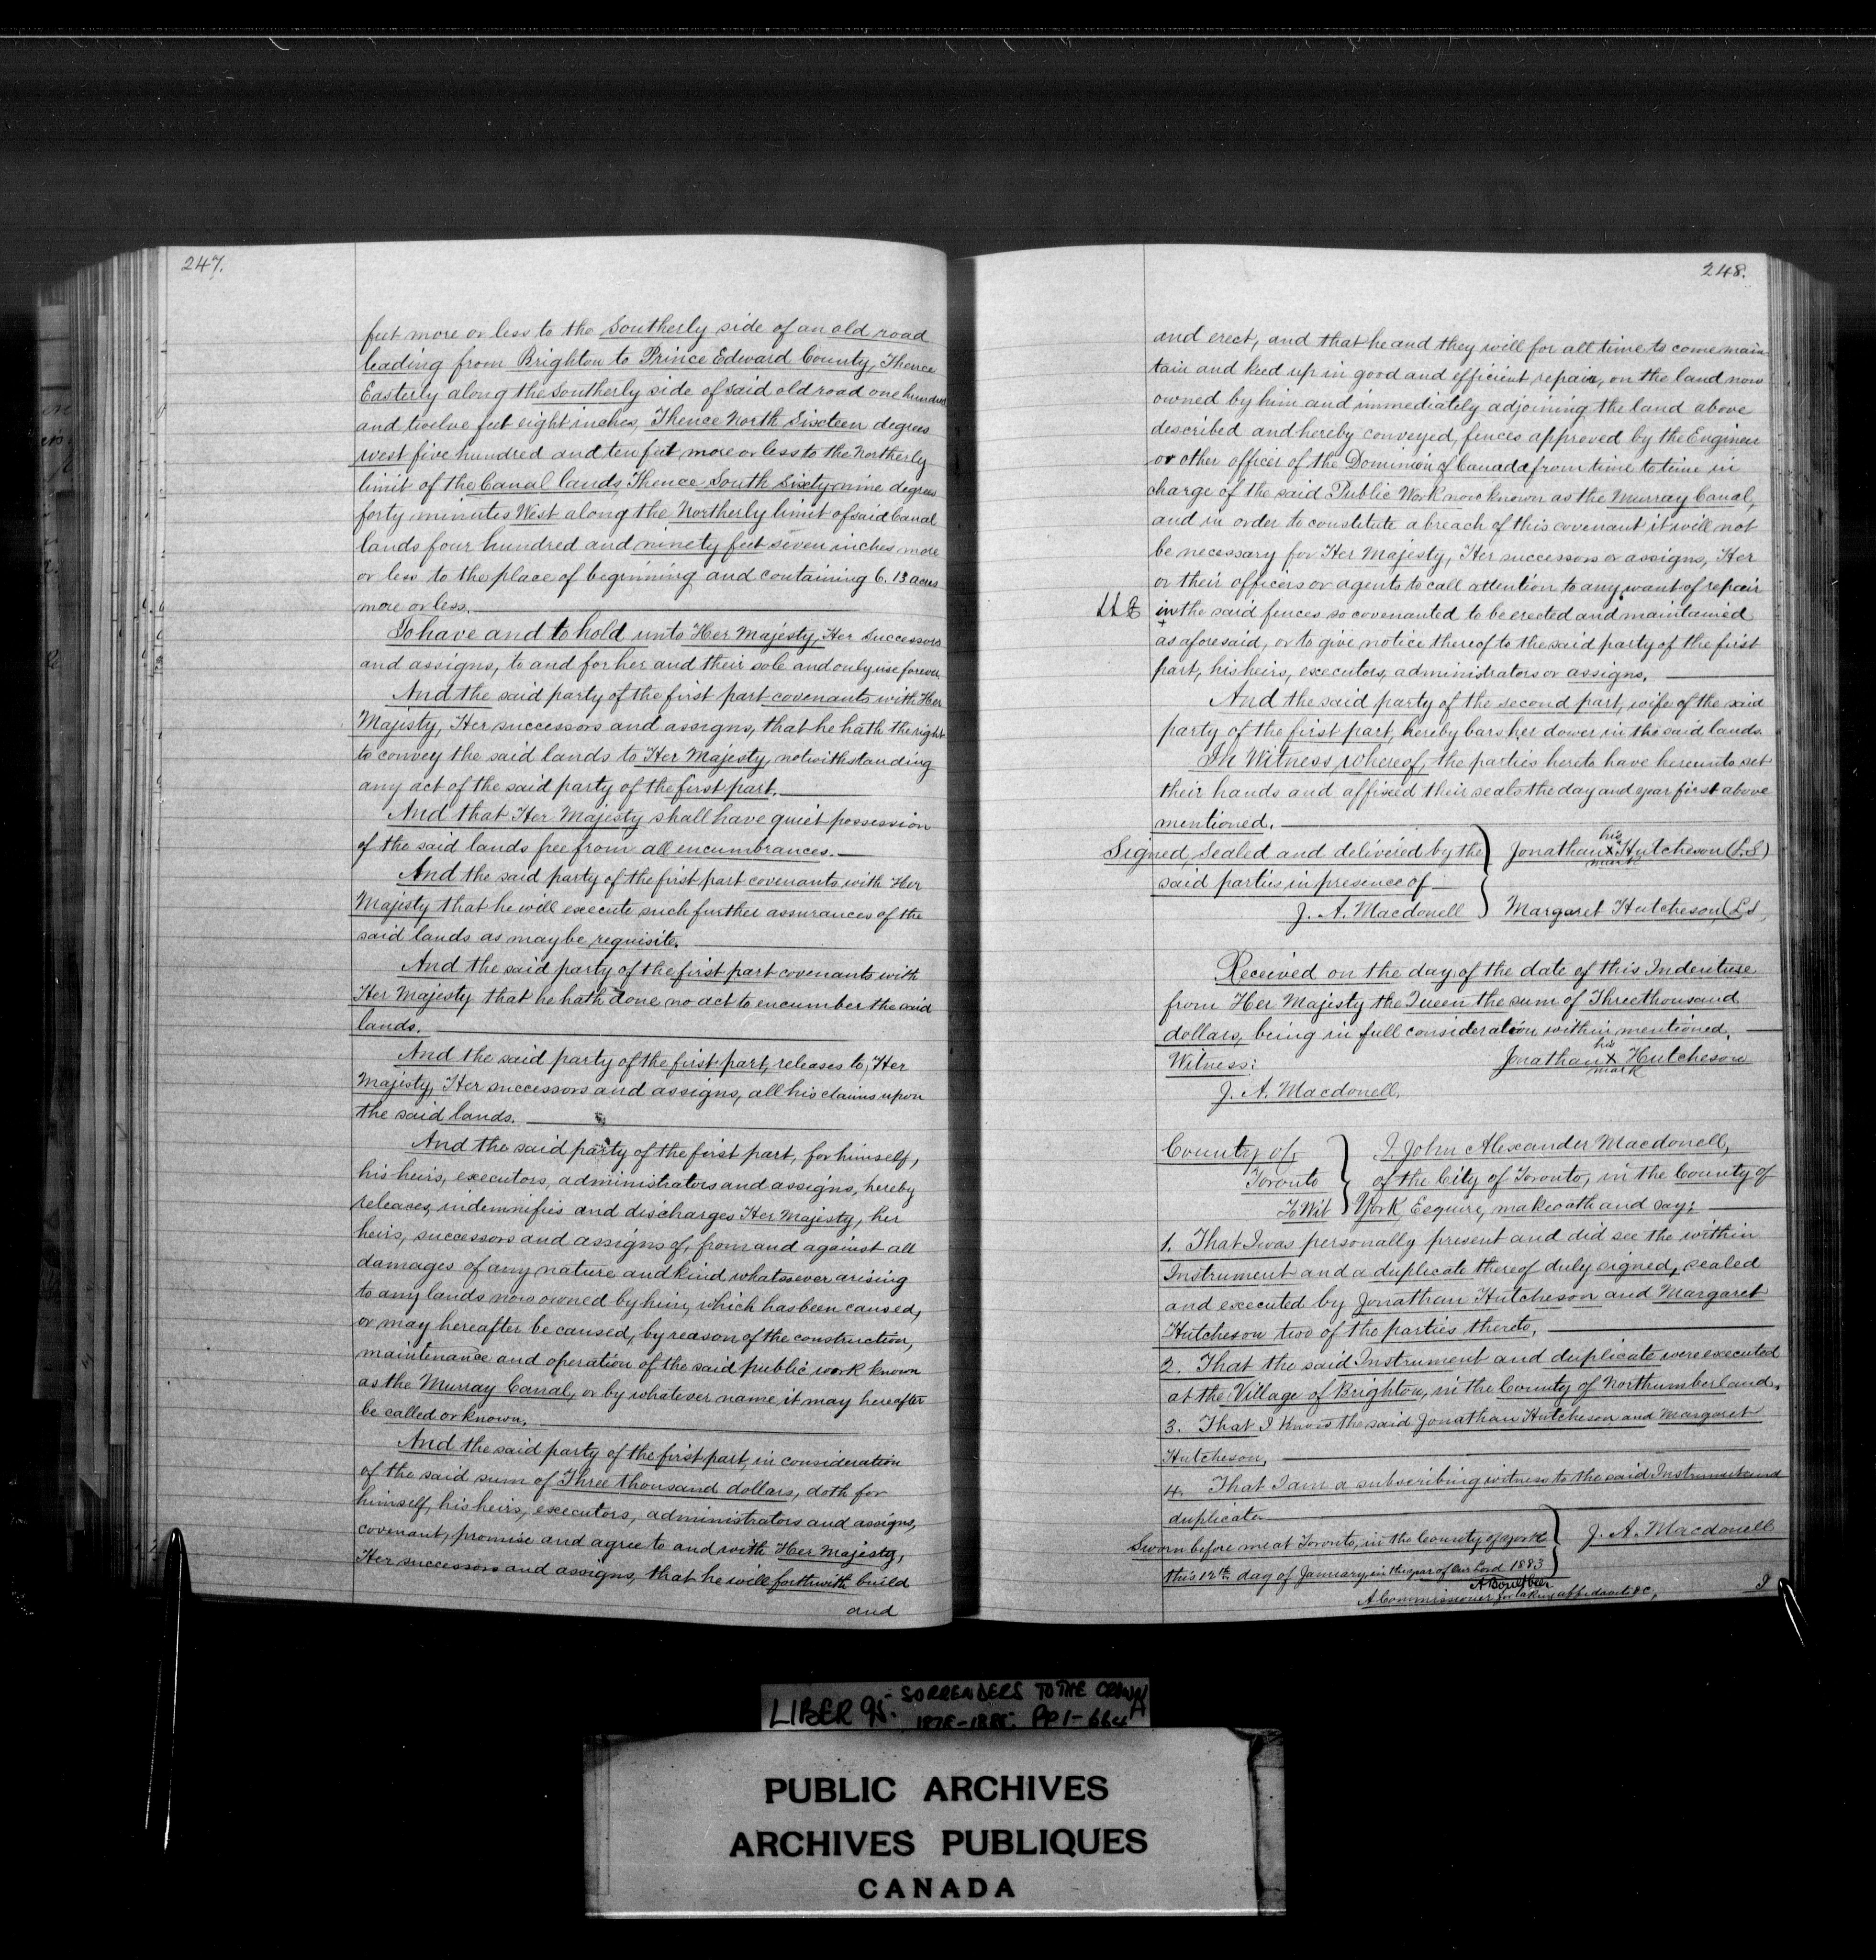 247.
feet more or less to the Southerly side of an old road
leading from Brighton to Prince Edward County, Thence
Easterly along the Southerly side of said old road one hundred
and twelve feet eight inches, Thence North Sixteen degrees
West five hundred and ten feet more or less to the Northerly
limit of the Canal lands, Thence South Sixty nine degrees
forty minutes West along the Northerly limit of said Canal
lands four hundred and ninety feet seven inches more
or less to the place of beginning and containing 6.13 acres
more or less.
To have and to hold unto Her Majesty, Her Successors
and assigns, to and for her and their sole and only use forever.
And the said party of the first part covenants with Her
Majesty, Her successors and assigns, that he hath the right
to convey the said lands to Her Majesty, notwithstanding
any act of the said party of the first part.
And that Her Majesty shall have quiet possession
of the said lands free from all encumbrances.
And the said party of the first part covenants with Her
Majesty that he will execute such further assurances of the
said lands as may be requisite.
And the said party of the first part covenants with
Her Majesty that he hath done no act to encumber the said
lands.
And the said party of the first part, releases to, Her
Majesty, Her successors and assigns, all his claims upon
the said lands.
And the said party of the first part, for himself,
his heirs, executors, administrators and assigns, hereby
releases, indemnifies and discharges Her Majesty, her
heirs, successors and assigns of, from and against all
damages of any nature and kind whatsoever arising
to any lands now owned by him, which has been caused,
or may hereafter be caused, by reason of the construction,
maintenance and operation of the said public work known
as the Murray Canal, or by whatever name it may hereafter
be called or known.
And the said party of the first part, in consideration
of the said sum of Three thousand dollars, doth for
himself, his heirs, executors, administrators and assigns,
covenant, promise and agree to and with Her Majesty,
Her successors and assigns, that he will forthwith build
and
248.
and erect, and that he and they will for all time to come main
tain and keep up in good and efficient repair, on the land now
owned by him and immediately adjoining the land above
described and hereby conveyed, fences approved by the Engineer
or other officer of the Dominion of Canada from time to time in
charge of the said Public Work now known as the Murray Canal,
and in order to constitute a breach of this covenant it will not
be necessary for Her Majesty, Her successors or assigns, Her
or their officers or agents to call attention to any want of repair
in the said fences so covenanted to be erected and maintained
as aforesaid, or to give notice thereof to the said party of the first
part, his heirs, executors, administrators or assigns.
And the said party of the second part, wife of the said
party of the first part, hereby bars her dower in the said lands.
In Witness whereof, the parties hereto have hereunto set
their hands and affixed their seals the day and year first above
mentioned.
Signed, Sealed and delivered by the
said parties in presence of
J. A. Macdonell
his
Jonathan X Hutcheson (L.S)
mark
Margaret Hutcheson, (L.S
Received on the day of the date of this Indenture
from Her Majesty the Queen the sum of Three thousand
dollars, being in full consideration within mentioned.
Witness:
J. A. Macdonell.
his
Jonathan X Hutcheson
mark
County of
Toronto
To Wit
I, John Alexander Macdonell,
of the City of Toronto, in the County of
York, Esquire, make oath and say:
1. That I was personally present and did see the within
Instrument and a duplicate thereof duly signed, sealed
and executed by Jonathan Hutcheson and Margaret
Hutcheson two of the parties thereto.
2. That the said Instrument and duplicate were executed
at the Village of Brighton, in the County of Northumberland.
3. That I know the said Jonathan Hutcheson and Margaret
Hutcheson,
4. That I am a subscribing witness to the said Instrument and
duplicate
Sworn before me at Toronto, in the County of York
this 12th day of January, in the year of Our Lord 1883
J. A. Macdonell
A Commissioner for taking affidavits &c,
I
LIBER 95. SURRENDERS TO THE CROWN
PP 1-
PUBLIC ARCHIVES
ARCHIVES PUBLIQUES
CANADA